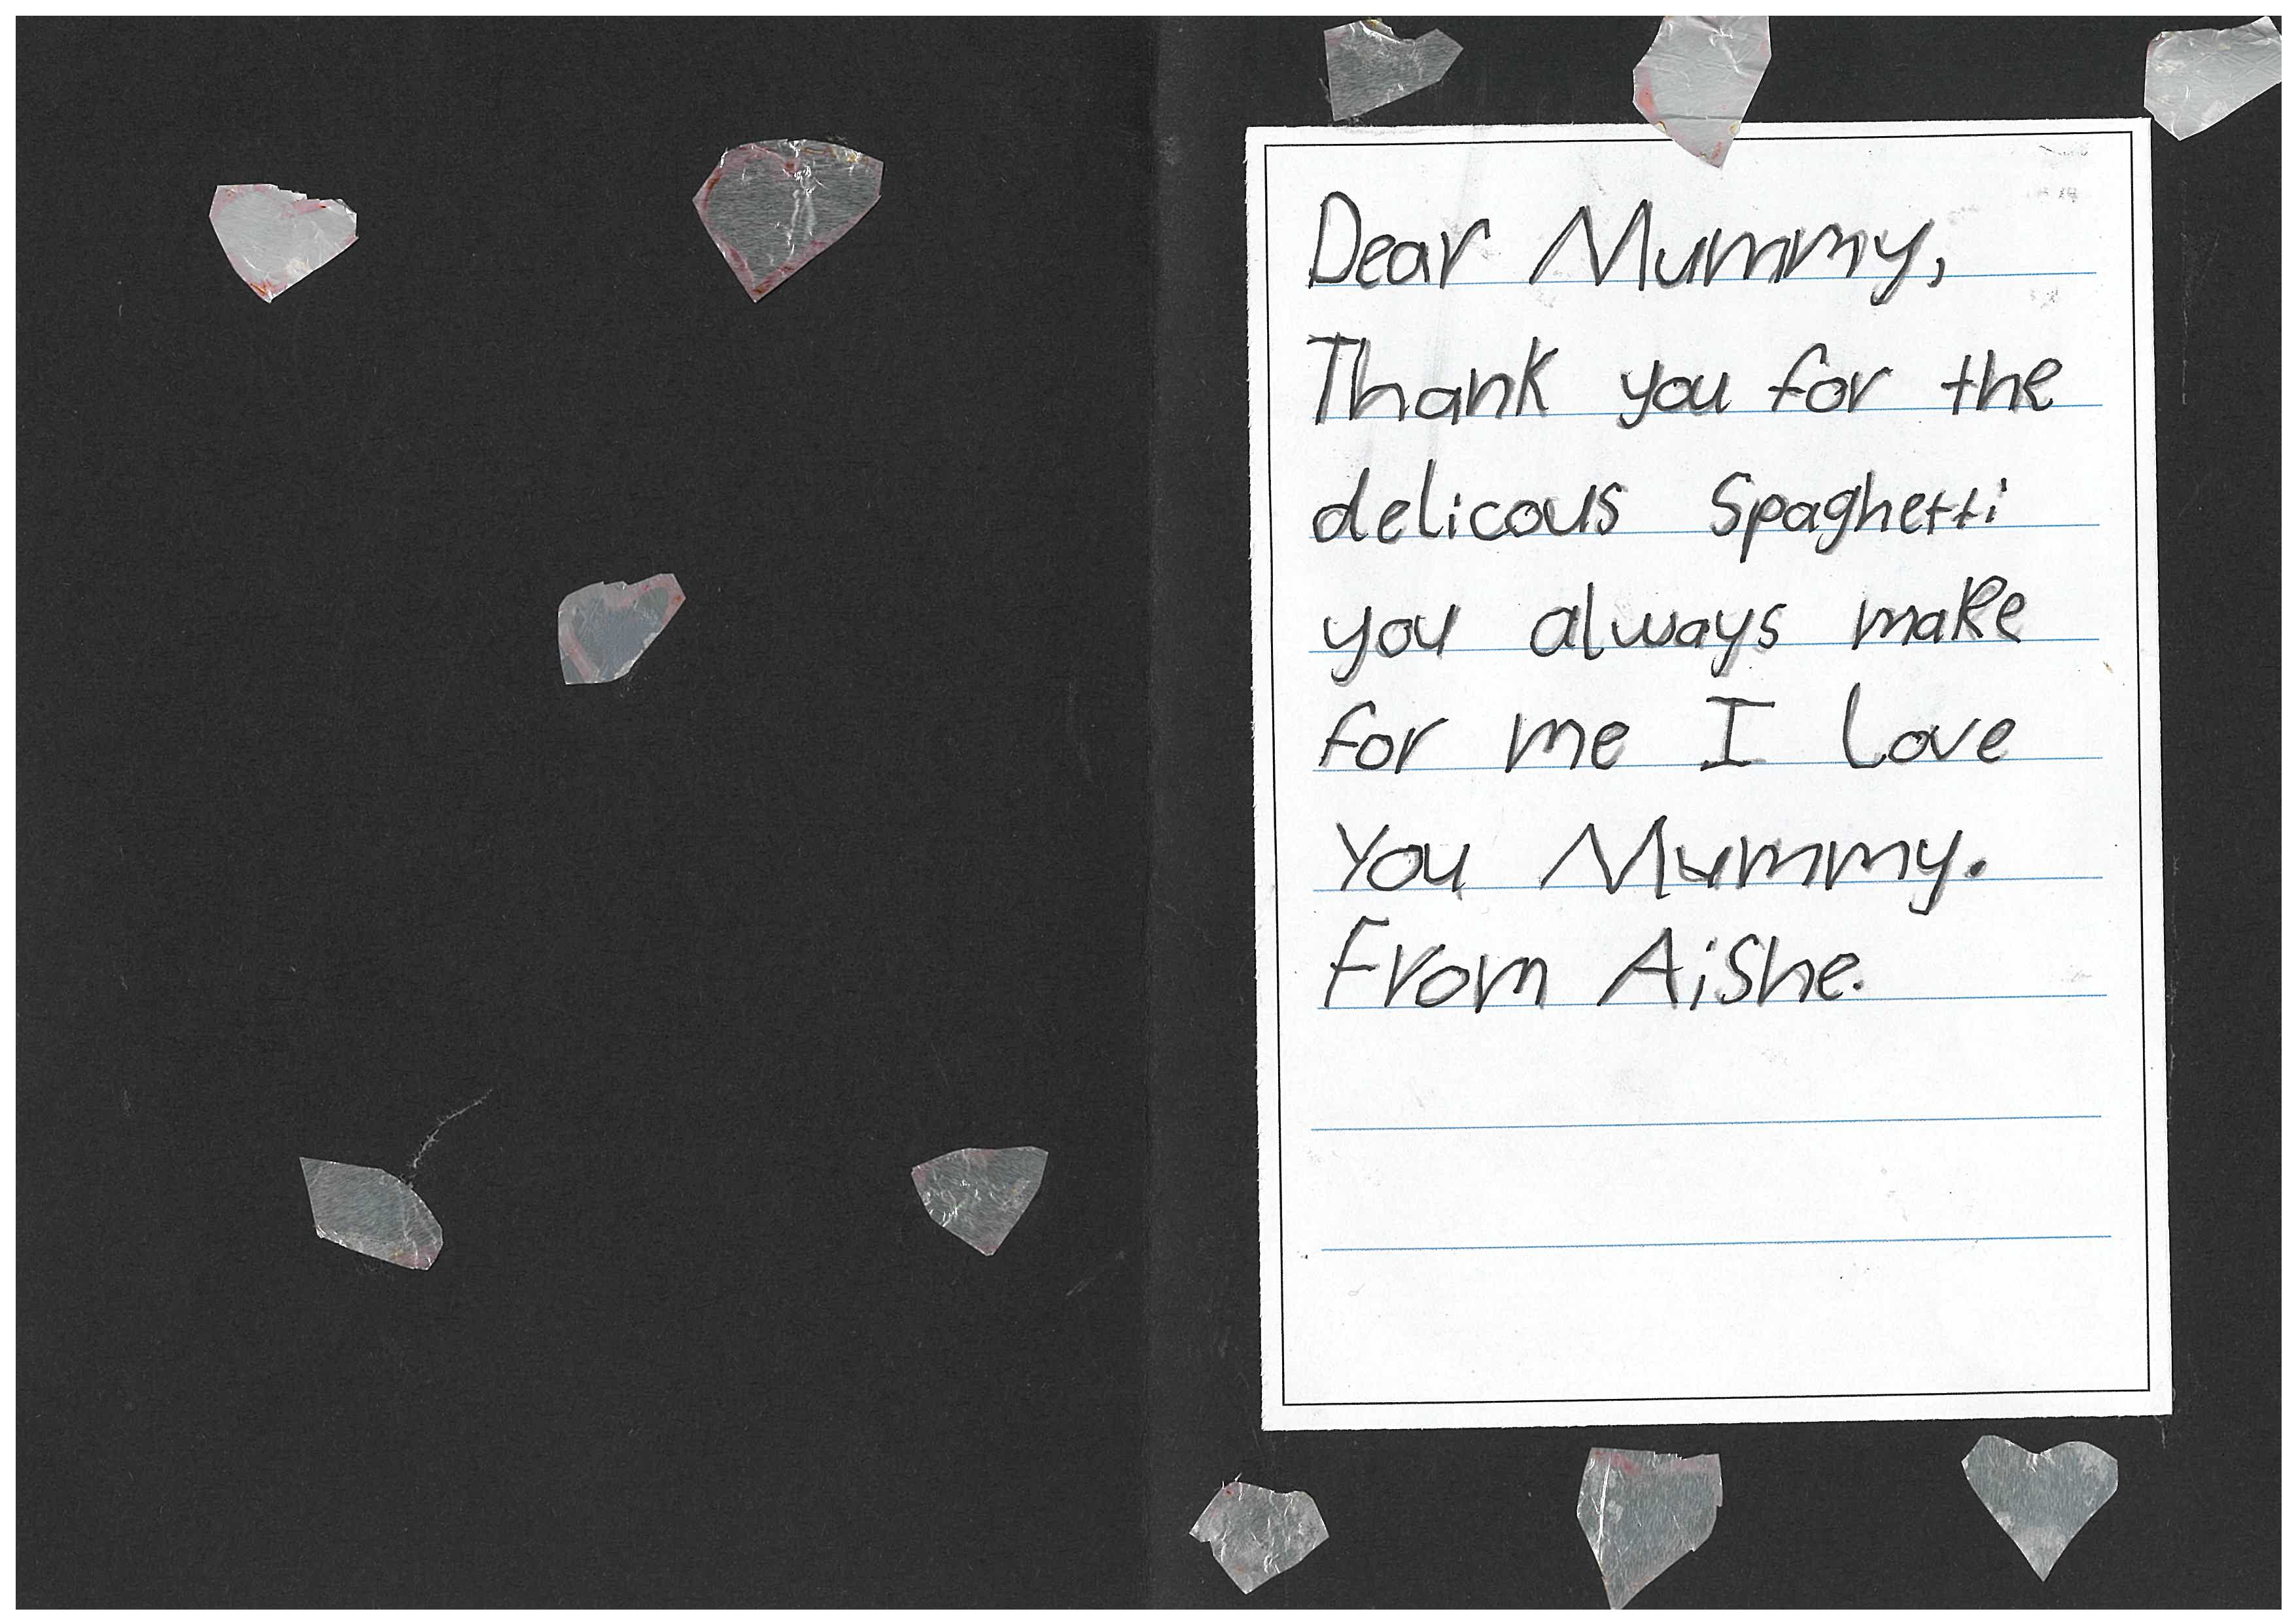 Dear Mummy,
Thank you for the
delicous Spaghetti
you always make
for me I love
You Mummy.
From Aishe.